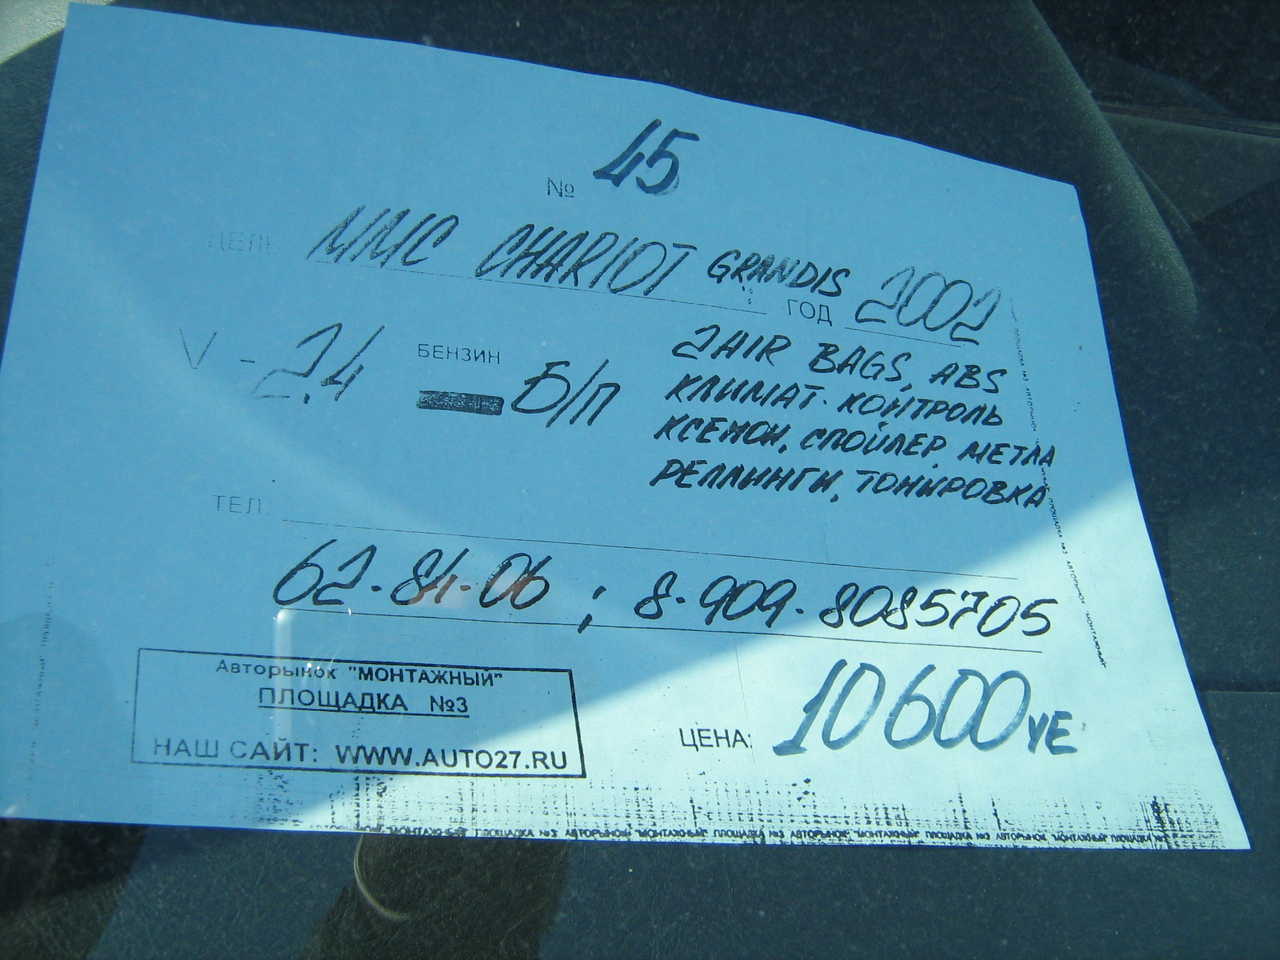 № 45
MMC CHARIOT GRANDIS ГОД 2002
V - 2.4 БЕНЗИН Б/П
2 AIR BAGS, ABS
КЛИМАТ. КОНТРОЛЬ
КСЕНОН, СПОЙЛЕР, МЕТЛА
РЕЛЛИНГИ, ТОНИРОВКА
ТЕЛ.
62-84-06 ; 8-909-8085705
Авторынок "МОНТАЖНЫЙ"
ПЛОЩАДКА №3
НАШ САЙТ: WWW.AUTO27.RU
ЦЕНА: 10600 УЕ
"МОНТАЖНЫЙ" ПЛОЩАДКА №3 АВТОРЫНОК "МОНТАЖНЫЙ" ПЛОЩАДКА №3 АВТОРЫНОК "МОНТАЖНЫЙ" ПЛОЩАДКА №3 АВТОРЫНОК "МОНТАЖНЫЙ" ПЛОЩАДКА